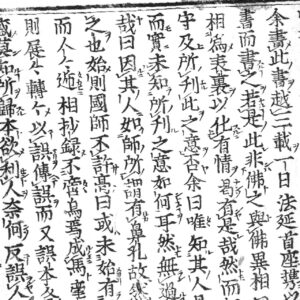 余書此書越三載一日法延首座携
書而書之若是此非佛之與佛異相
相為表裏以化有情曷有是哉然而
字及所刊此之意否余曰唯知其人
而實未知所刊之意如何耳然無過
哉曰因其人如師所謂有鼻孔故
之也始則國師不許焉曰或未始有
而人々逓相抄録不啻烏焉成馬
則展々轉々以誤傳誤而又誤本文
莫知所歸本欲利人奈何反誤人